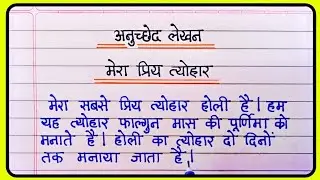 अनुच्छेद लेखन
मेरा प्रिय त्योहार
मेरा सबसे प्रिय त्योहार होली है। हम
यह त्योहार फाल्गुन मास की पूर्णिमा को
मनाते है। होली का त्योहार दो दिनों
तक मनाया जाता है।